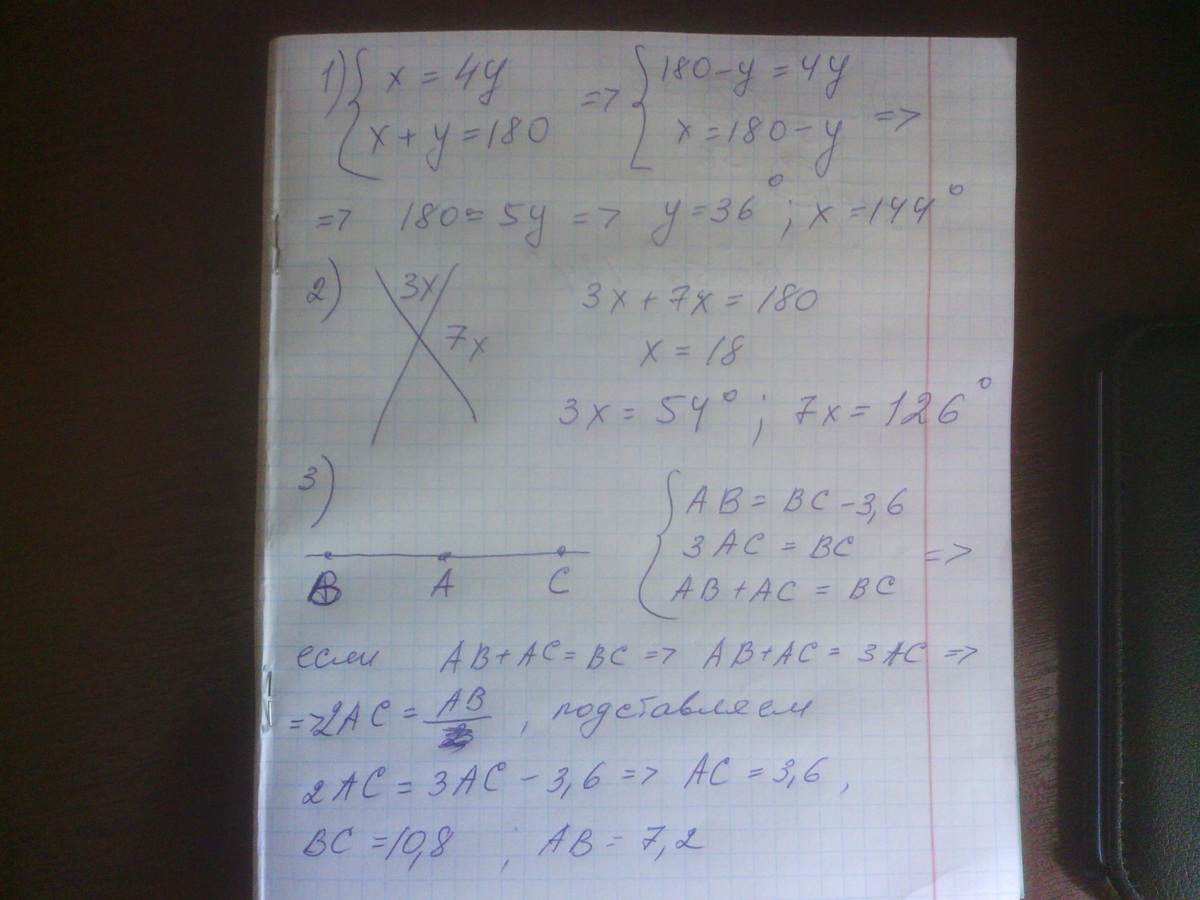 1) { x = 4y => { 180 - y = 4y
x + y = 180 x = 180 - y =>
=> 180 = 5y => y = 36° ; x = 144°
2) 3x 3x + 7x = 180
7x x = 18
3x = 54° ; 7x = 126°
3) { AB = BC - 3,6
3AC = BC =>
B A C AB + AC = BC
если AB + AC = BC => AB + AC = 3AC =>
=> 2AC = AB , подставляем
2AC = 3AC - 3,6 => AC = 3,6 ,
BC = 10,8 ; AB = 7,2